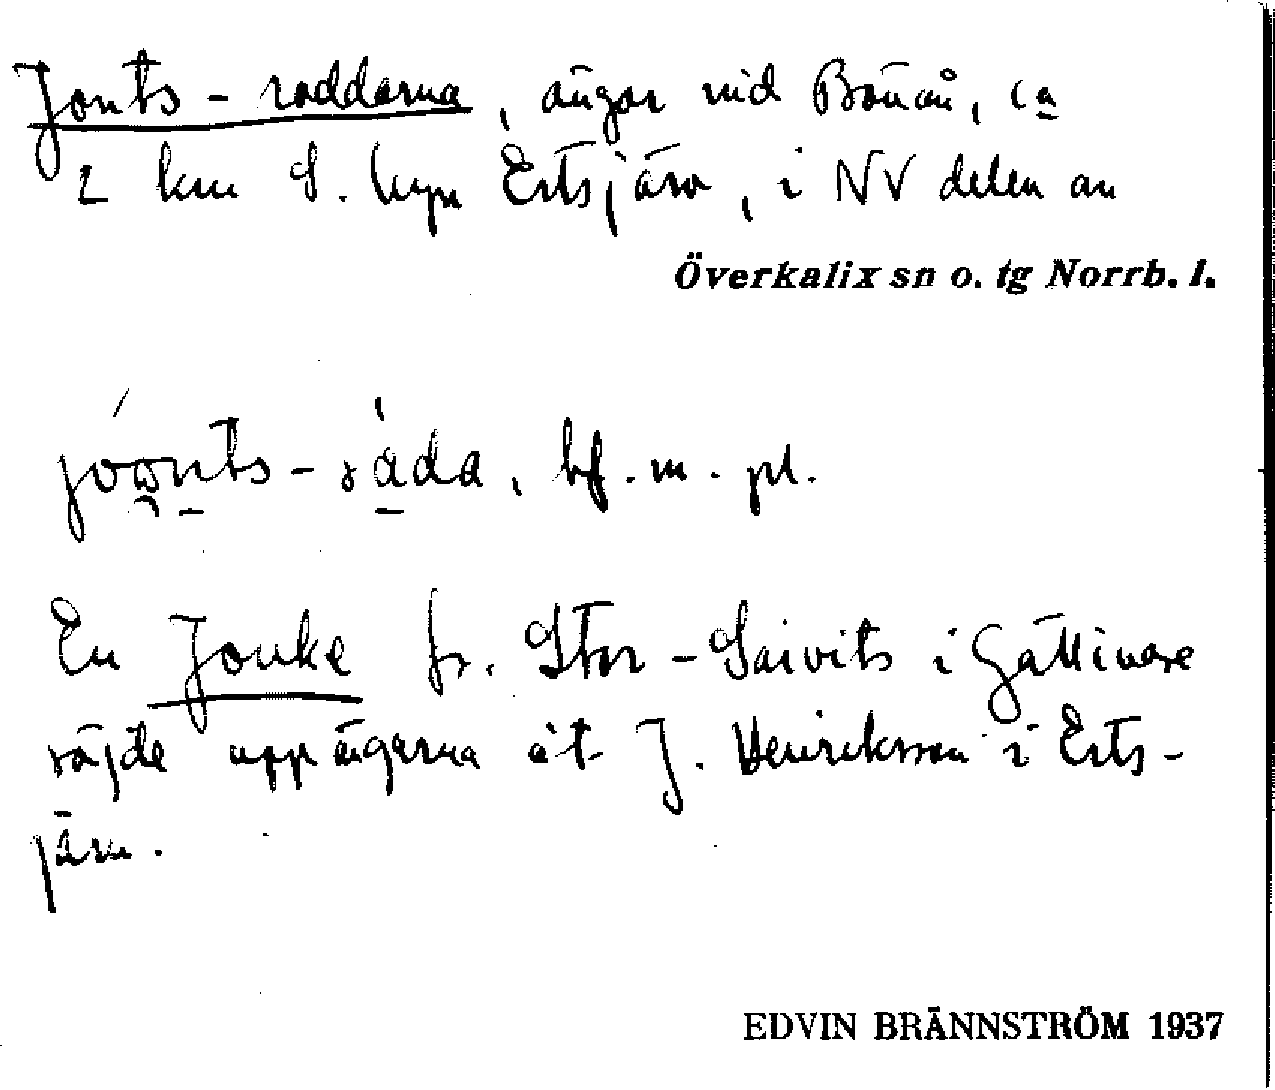 Jonts-roddarna, ängar vid Bönån, ca
2 km S. byn Ertsjärv, i NV delen av
Överkalix sn o. tg Norrb. l.
bf. m. pl.
En Jonke fr. Stor-Saivits i Gällivare
röjde upp ägorna åt J. Henriksson i Erts-
järv.
EDVIN BRÄNNSTRÖM 1937